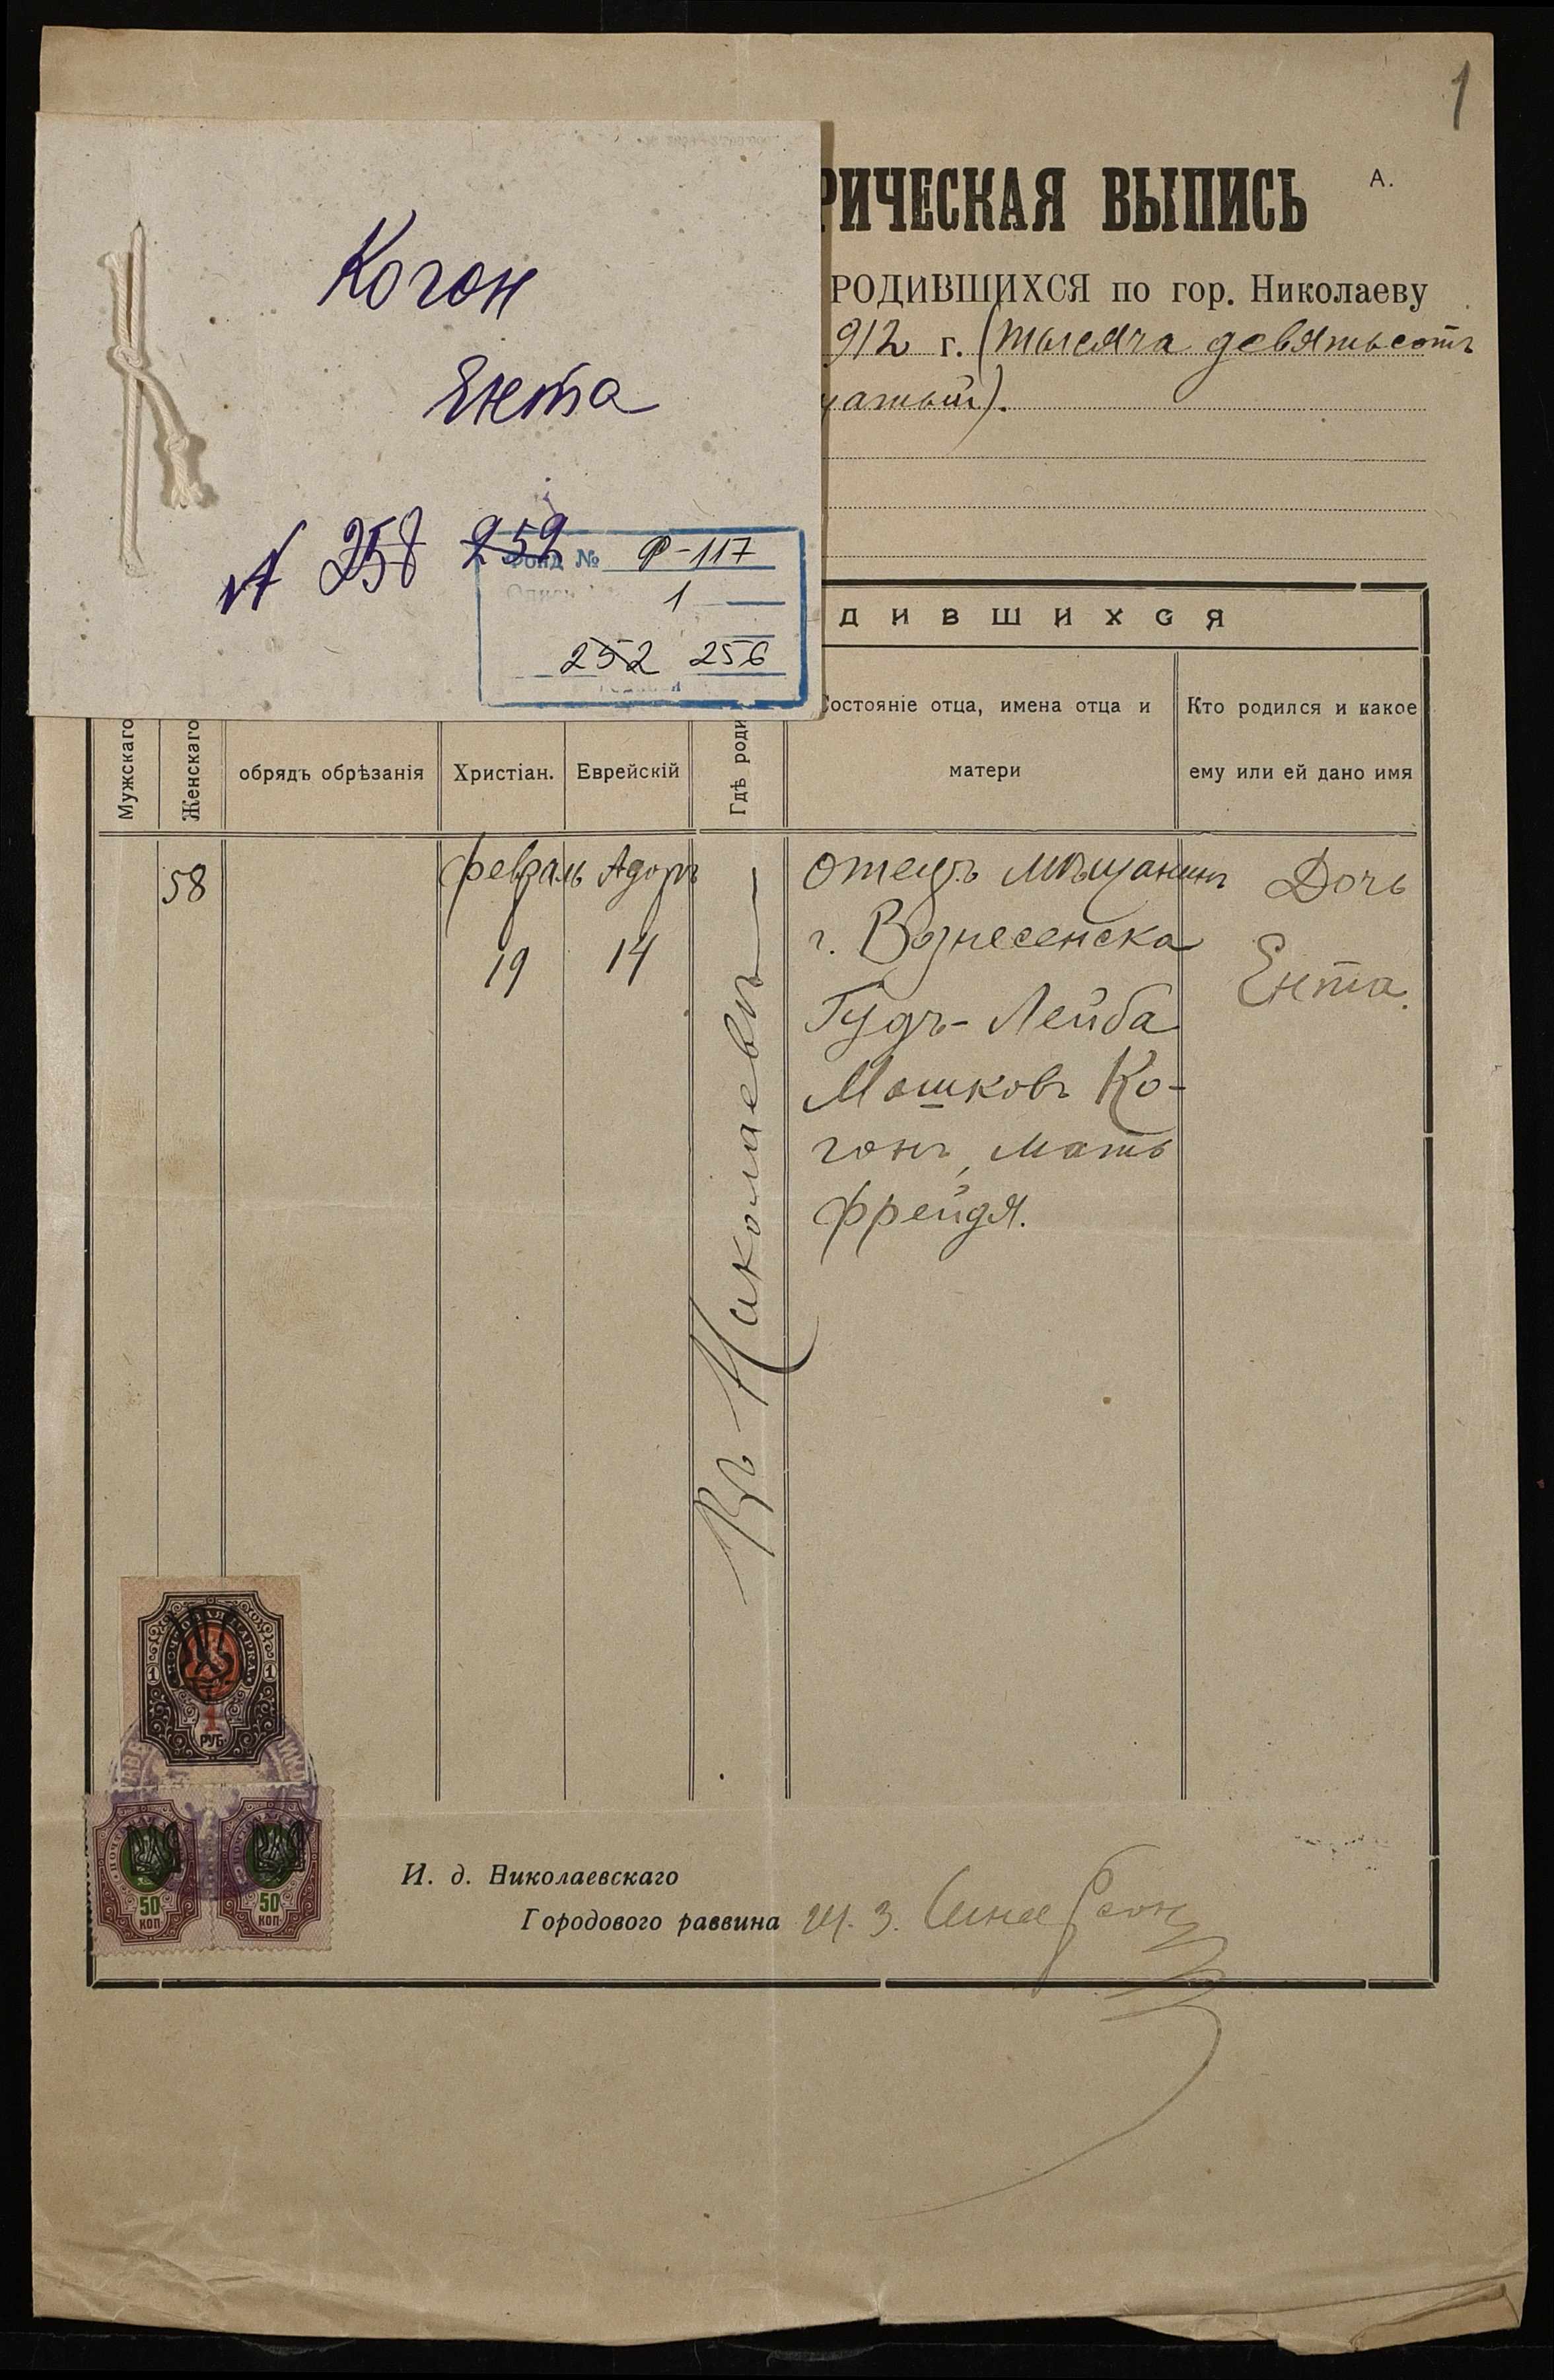 1
Когон
Ента
№ 258 252
Фонд № Ф-117
Опись 1
252 256
РИЧЕСКАЯ ВЫПИСЬ
А.
РОДИВШИХСЯ по гор. Николаеву
912 г. (тысяча девятьсотъ
цатый).
ДИВШИХСЯ
Состояніе отца, имена отца и
матери
Кто родился и какое
ему или ей дано имя
Мужскаго
Женскаго
обрядъ обрѣзанія
Христіан.
Еврейскій
Гдѣ роди
58
февраль
19
Адоръ
14
Въ Николаевѣ
Отецъ мѣщанинъ
г. Вознесенска
Гудъ-Лейба
Мошковъ Ко-
гонъ, мать
Фрейдя.
Дочь
Ента.
ПОЧТОВАЯ МАРКА
1 1
1
РУБ
50
КОП
50
КОП
И. д. Николаевскаго
Городового раввина